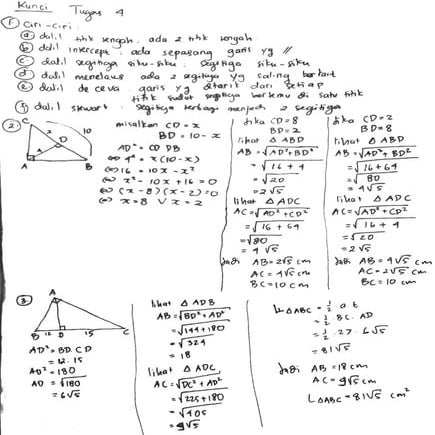 Kunci Tugas 4
1. Ciri-Ciri:
a) dalil titik tengah: ada 2 titik tengah
b) dalil intercept: ada sepasang garis yg //
c) dalil segitiga siku-siku: segitiga siku-siku
d) dalil menelaus ada 2 segitiga yg saling berkait
e) dalil de ceva garis yg ditarik dari setiap
titik sudut segitiga bertemu di satu titik
f) dalil stewart: segitiga terbagi menjadi 2 segitiga
2. C
x
D
10
4
A B
misalkan CD = x
BD = 10 - x
AD² = CD DB
⇔ 4² = x(10-x)
⇔ 16 = 10x - x²
⇔ x² - 10x + 16 = 0
⇔ (x-8)(x-2) = 0
⇔ x = 8 ∨ x = 2
Jika CD = 8
BD = 2
lihat △ABD
AB = √AD²+BD²
= √16+4
= √20
= 2√5
lihat △ADC
AC = √AD²+CD²
= √16+64
= √80
= 4√5
Jadi AB = 2√5 cm
AC = 4√5 cm
BC = 10 cm
Jika CD = 2
BD = 8
lihat △ABD
AB = √AD²+BD²
= √16+64
= √80
= 4√5
lihat △ADC
AC = √AD²+CD²
= √16+4
= √20
= 2√5
Jadi AB = 4√5 cm
AC = 2√5 cm
BC = 10 cm
3. A
B 12 D 15 C
AD² = BD.CD
= 12.15
AD² = 180
AD = √180
= 6√5
lihat △ADB
AB = √BD²+AD²
= √144+180
= √324
= 18
lihat △ADC
AC = √DC²+AD²
= √225+180
= √405
= 9√5
L△ABC = 1/2 a.t
= 1/2 BC.AD
= 1/2 . 27 . 6√5
= 81√5
Jadi AB = 18 cm
AC = 9√5 cm
L△ABC = 81√5 cm²